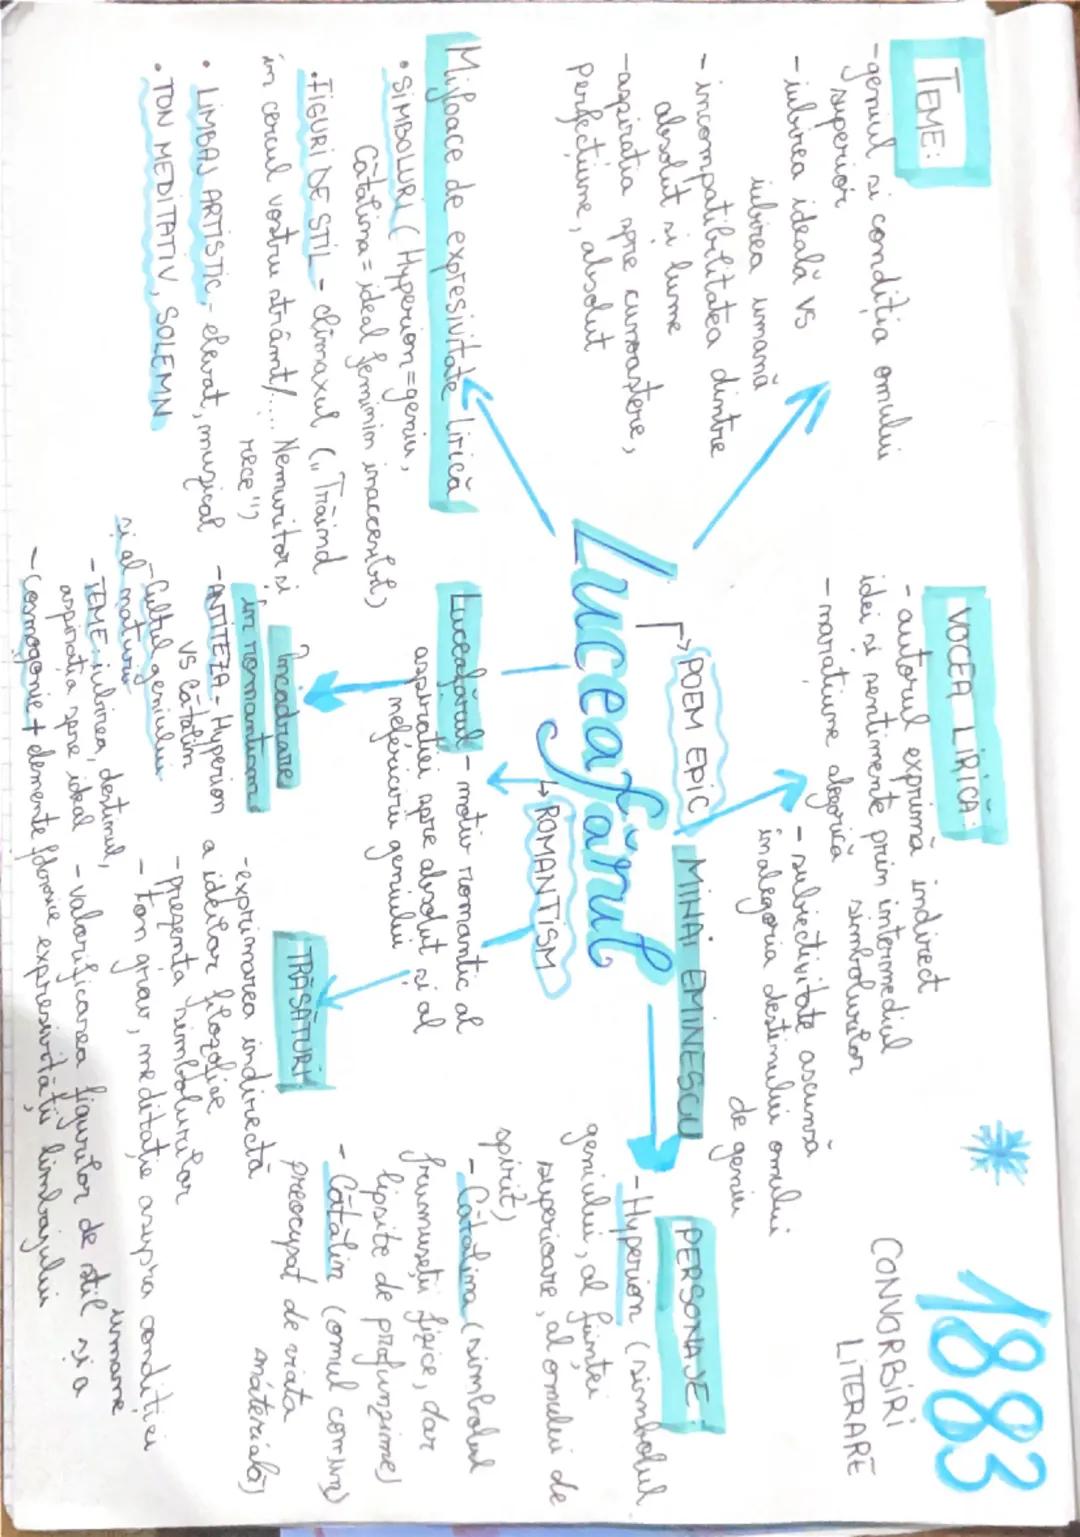 TEME:
-geniul si condiția omului
superior
- iubirea ideală vs
iubirea umană
- incompatibilitatea dintre
absolut si lume
-aspirația spre cunoaștere,
perfecțiune, absolut
VOCEA LIRICĂ:
- autorul exprimă indirect
idei si sentimente prin intermediul
simbolurilor
- narațiune alegorică
- subiectivitate ascunsă
in alegoria destinului omului
de geniu
*
1883
CONVORBIRI
LITERARE
POEM EPIC
MIHAI EMINESCU
Luceafărul
→ ROMANTISM
PERSONAJE:
- Hyperion (simbolul
geniului, al ființei
superioare, al omului de
spirit)
- Cătălina (simbolul
frumuseții fizice, dar
lipsite de profunzime)
- Cătălin (omul comun)
preocupat de viata
materială)
Mijloace de expresivitate lirică
• SIMBOLURI (Hyperion=geniu,
Cătălina = ideal feminin inaccesibil)
•FIGURI DE STIL - climaxul („Trăind
in cercul vostru strâmt/.... Nemuritor si
rece")
• LIMBAJ ARTISTIC - elevat, muzical
• TON MEDITATIV, SOLEMN
Luceafărul - motiv romantic al
aspiratiei spre absolut si al
nefericirii geniului
Încadrare
in romantism
-ANTITEZA - Hyperion
vs Cătălin
-Cultul geniului
si al naturii
-TEME: iubirea, destinul,
aspirația spre ideal
- Cosmogonie + elemente folclorice
TRĂSĂTURI
-exprimarea indirectă
a ideilor filozofice
- prezenta simbolurilor
- ton grav, meditație asupra conditiei
umane
- valorificarea figurilor de stil si a
expresivității limbajului